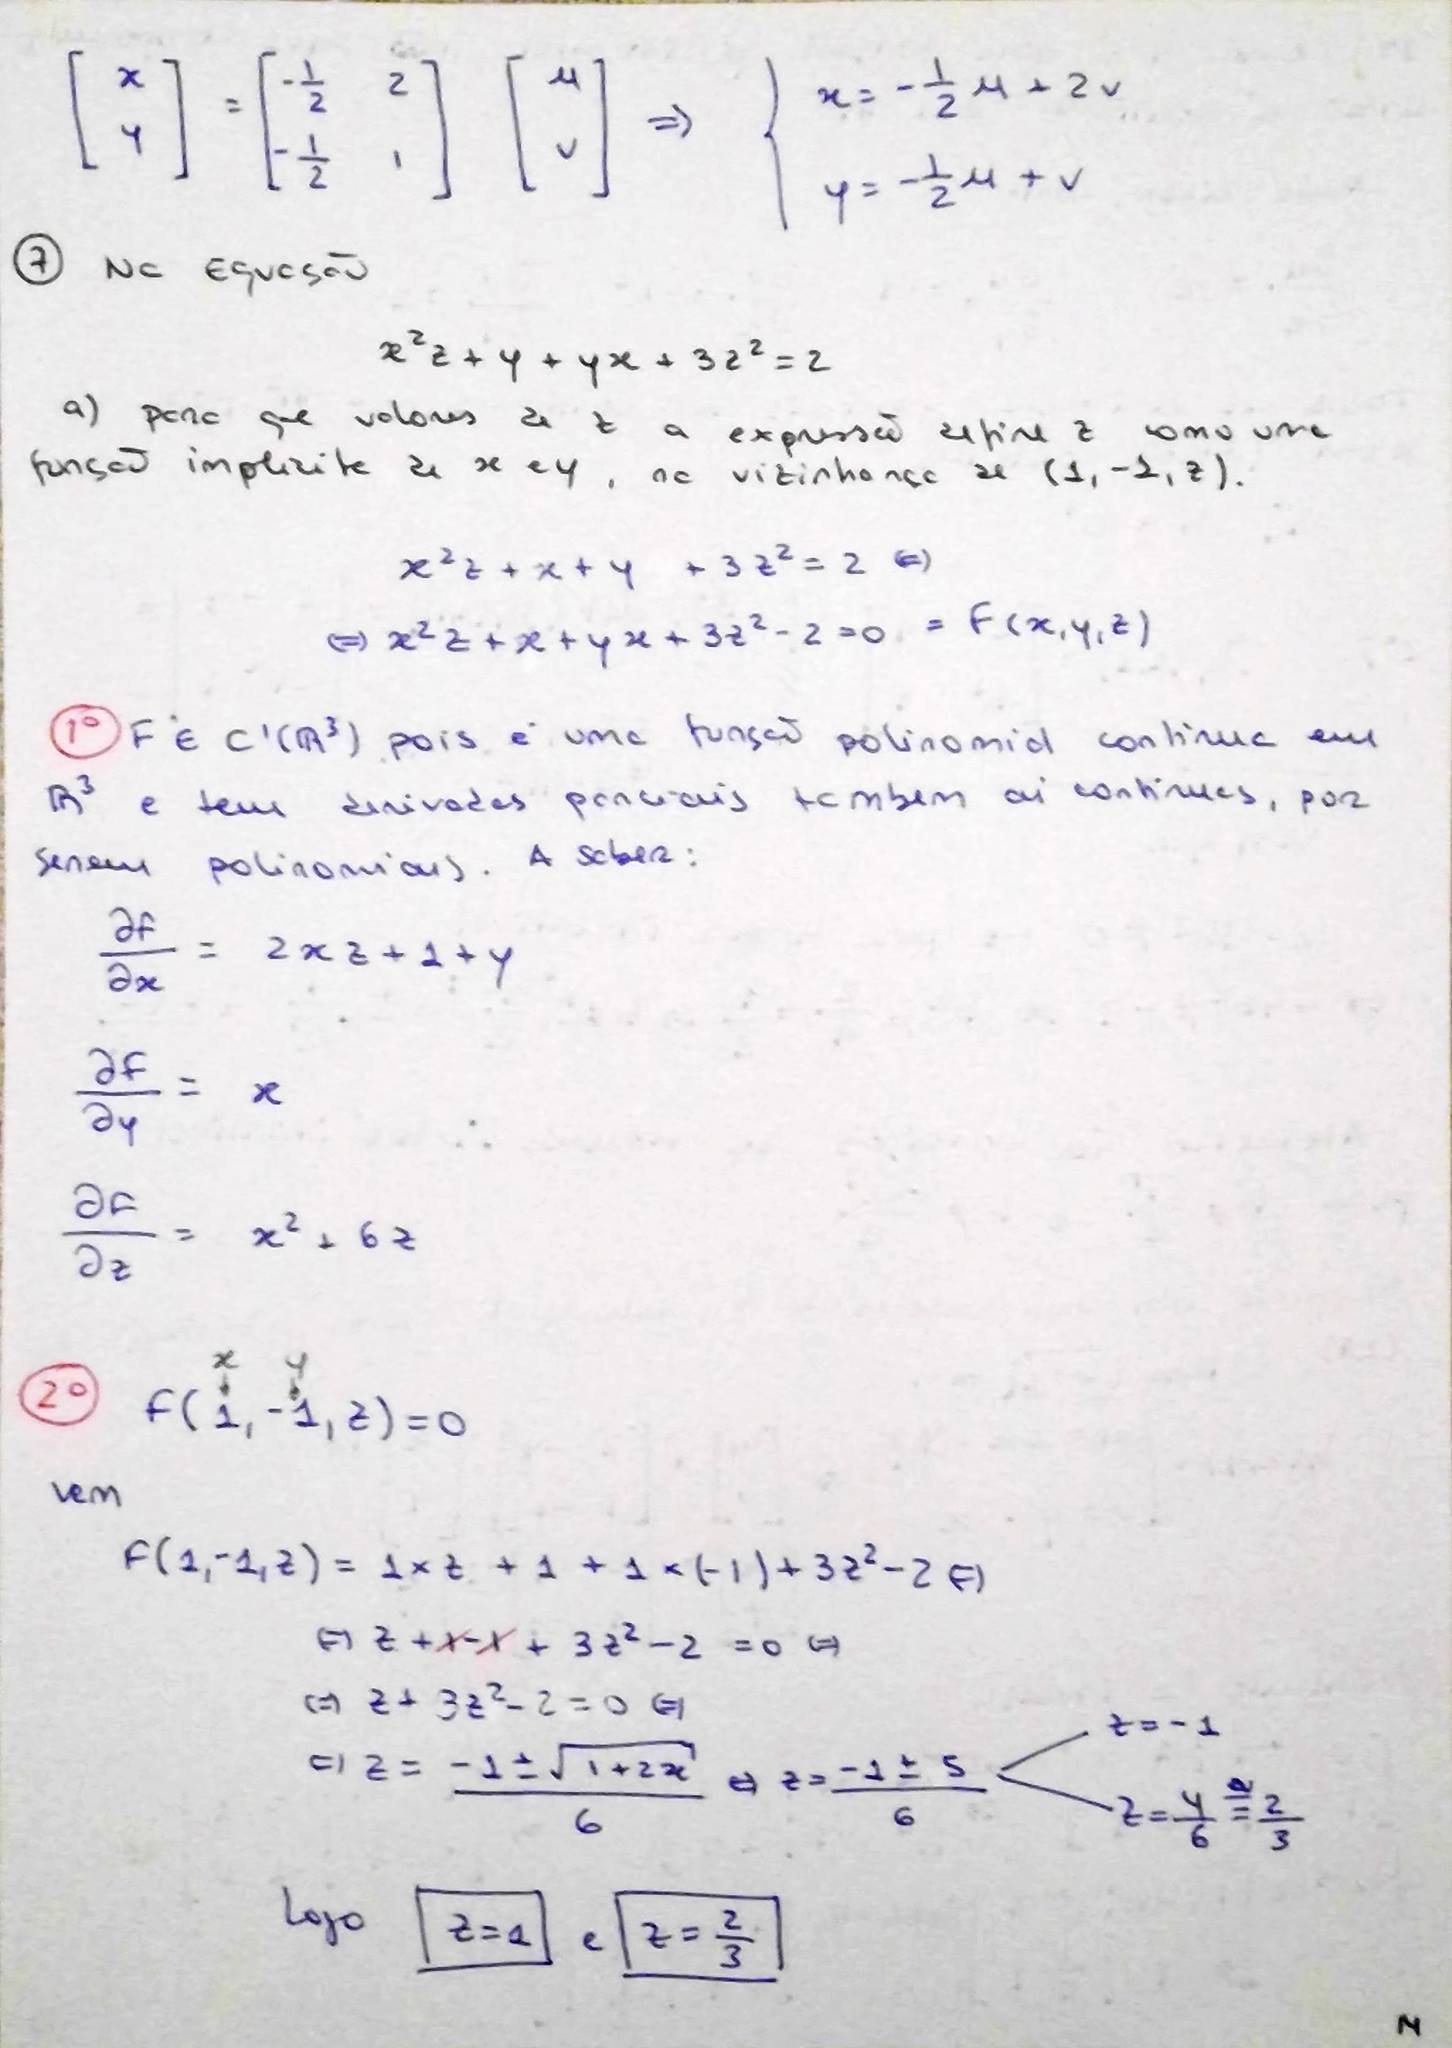 [x y] = [-1/2 2 -1/2 1] [u v] => { x = -1/2 u + 2v
y = -1/2 u + v
⑦ Na Equação
x²z + y + yx + 3z² = 2
a) para que valores de z a expressão define z como uma
função implicita de x e y, na vizinhança de (1, -1, z).
x²z + x + y + 3z² = 2 (=)
(=) x²z + x + yx + 3z² - 2 = 0 = F(x,y,z)
1º F É C'(ℝ³) pois é uma função polinomial continua em
ℝ³ e tem derivadas parciais tambem ai continuas, por
serem polinomiais. A saber:
∂f/∂x = 2xz + 1 + y
∂F/∂y = x
∂F/∂z = x² + 6z
x y
2º F(1, -1, z) = 0
vem
F(1,-1,z) = 1×z + 1 + 1×(-1) + 3z² - 2 (=)
(=) z + 1 - 1 + 3z² - 2 = 0 (=)
(=) z + 3z² - 2 = 0 (=)
(=) z = -1 ± √(1+24) / 6 (=) z = -1 ± 5 / 6
z = -1
z = 4/6 = 2/3
Logo z=1 e z = 2/3